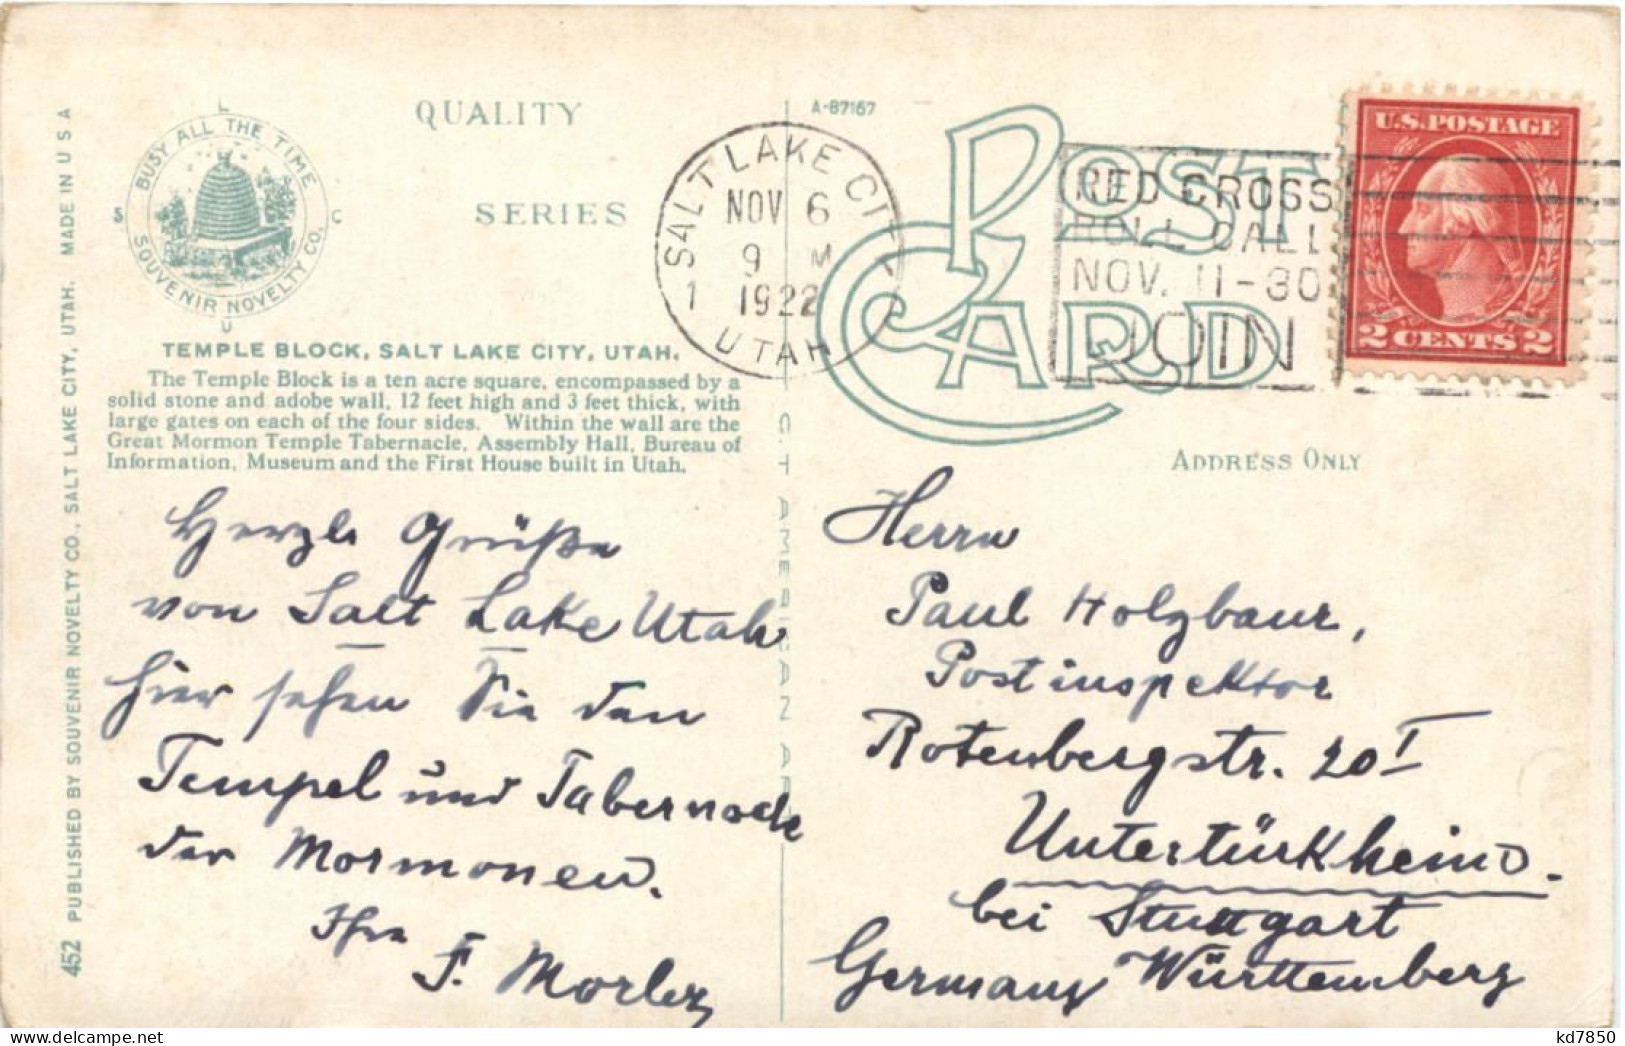 QUALITY
SERIES
L
BUSY ALL THE TIME
S C
SOUVENIR NOVELTY CO.
U
TEMPLE BLOCK, SALT LAKE CITY, UTAH.
The Temple Block is a ten acre square, encompassed by a
solid stone and adobe wall, 12 feet high and 3 feet thick, with
large gates on each of the four sides. Within the wall are the
Great Mormon Temple Tabernacle, Assembly Hall, Bureau of
Information, Museum and the First House built in Utah.
452 PUBLISHED BY SOUVENIR NOVELTY CO., SALT LAKE CITY, UTAH. MADE IN U S A
Herzl. Grüße
von Salt Lake Utah
hier sehen Sie den
Tempel und Tabernack
der Mormonen.
Ihr
F.
A-87167
POST
CARD
SALT LAKE CITY
NOV 6
9 M
1922
1
UTAH
RED CROSS
ROLL CALL
NOV. 11-30
JOIN
U.S.POSTAGE
2 CENTS 2
ADDRESS ONLY
C.T. AMERICAN ART
Herrn
Paul Holzbaur,
Postinspektor
Rotenbergstr. 20 I
Untertürkheim.
bei Stuttgart
Germany Württemberg
kd7850